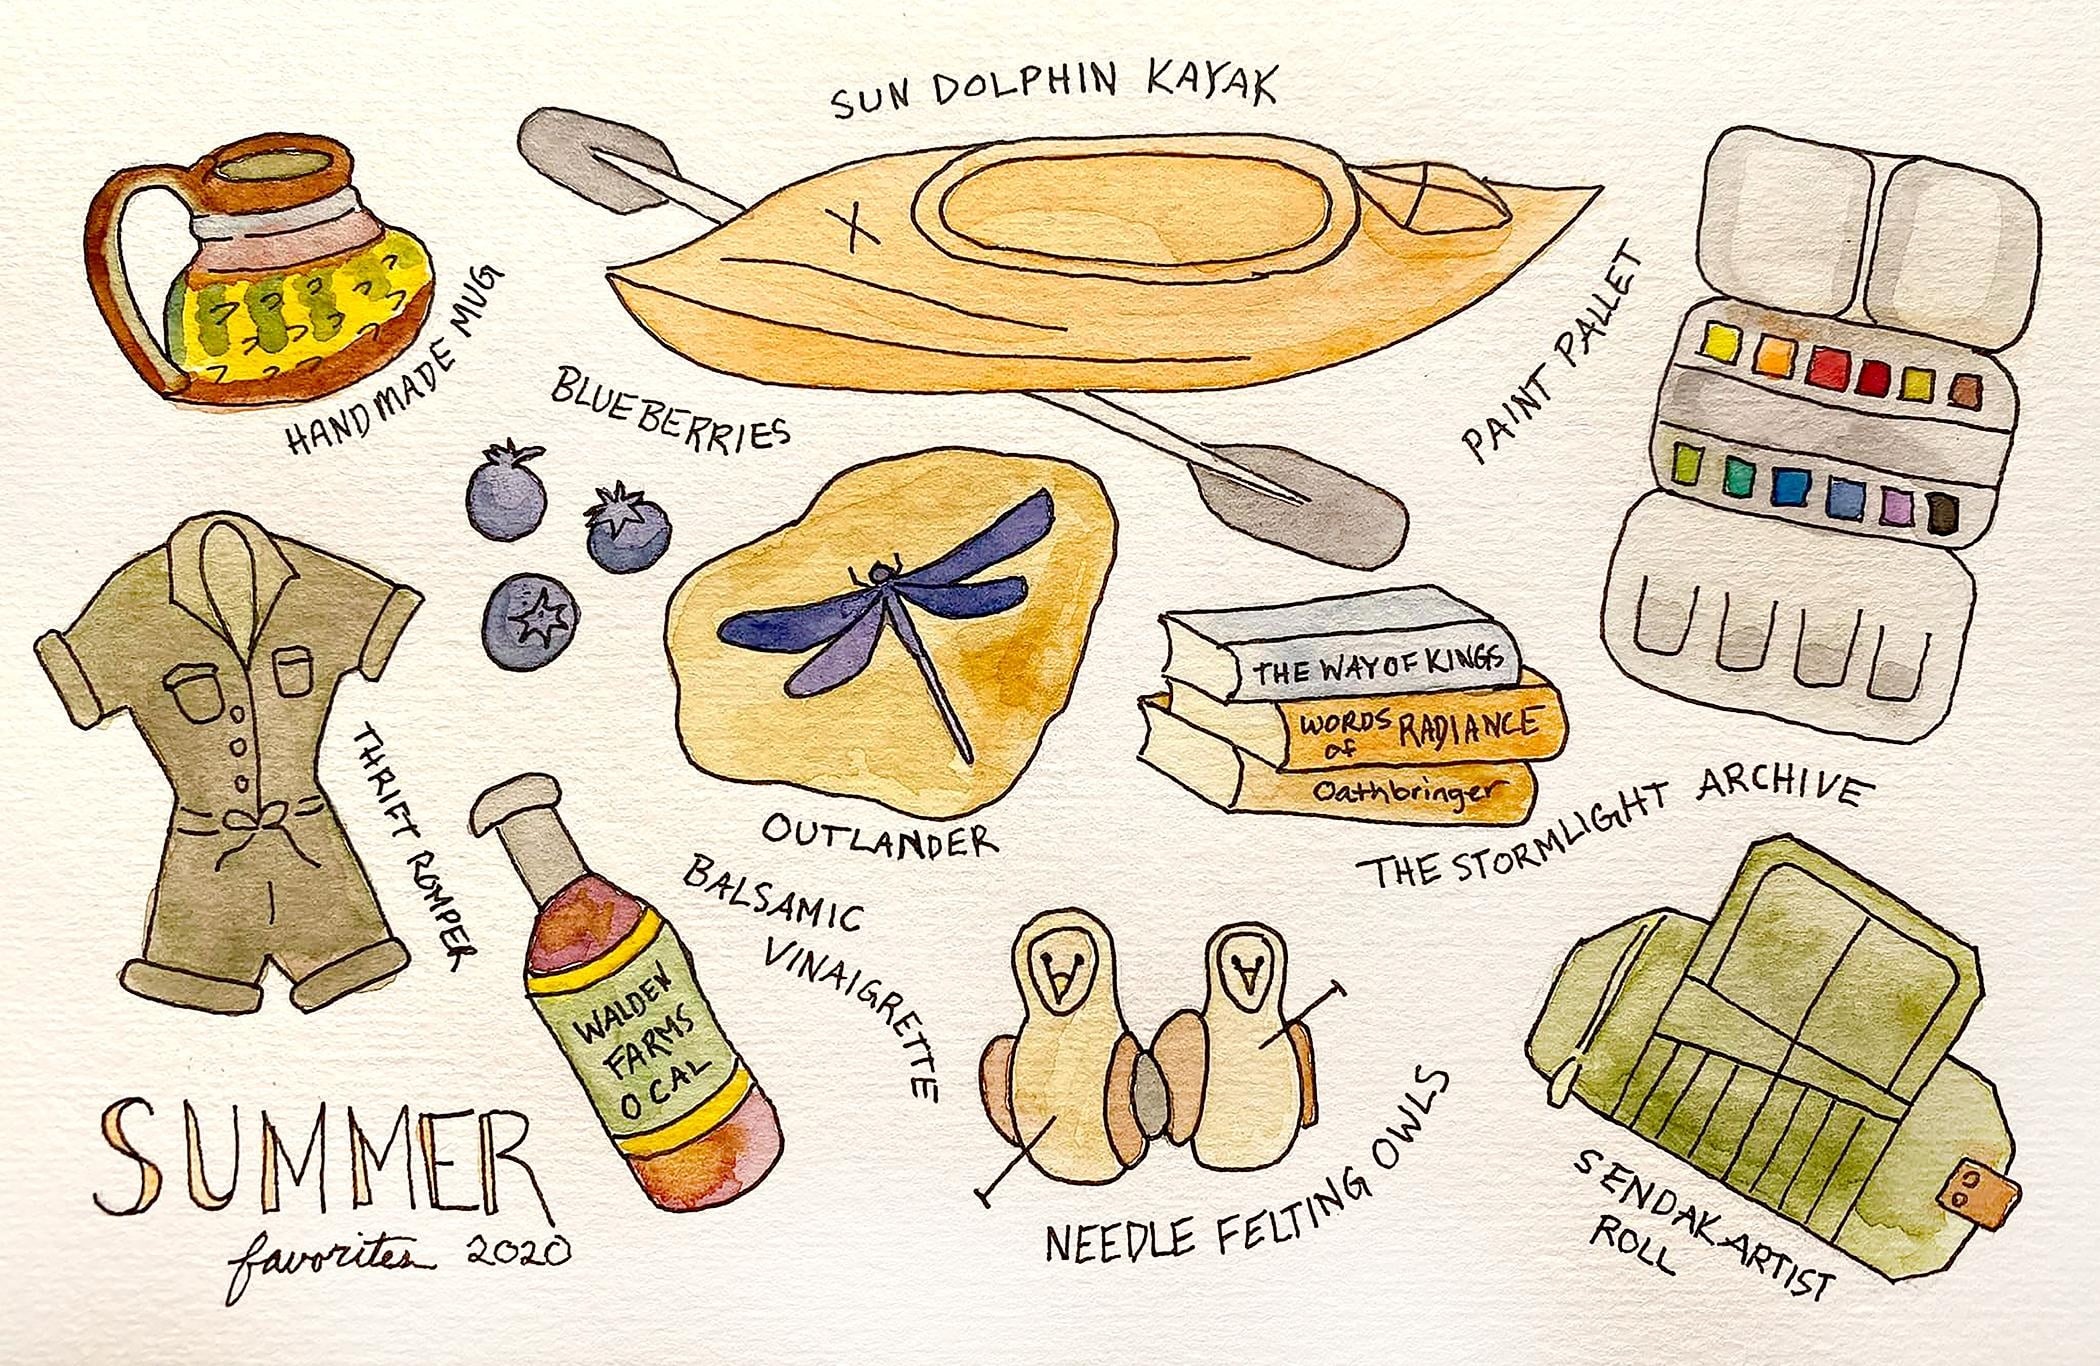 SUN DOLPHIN KAYAK
HANDMADE MUG
BLUEBERRIES
PAINT PALLET
THRIFT ROMPER
OUTLANDER
THE WAY OF KINGS
WORDS
of RADIANCE
Oathbringer
THE STORMLIGHT ARCHIVE
BALSAMIC
VINAIGRETTE
WALDEN
FARMS
0 CAL
NEEDLE FELTING OWLS
SENDAK ARTIST
ROLL
SUMMER
favorites 2020